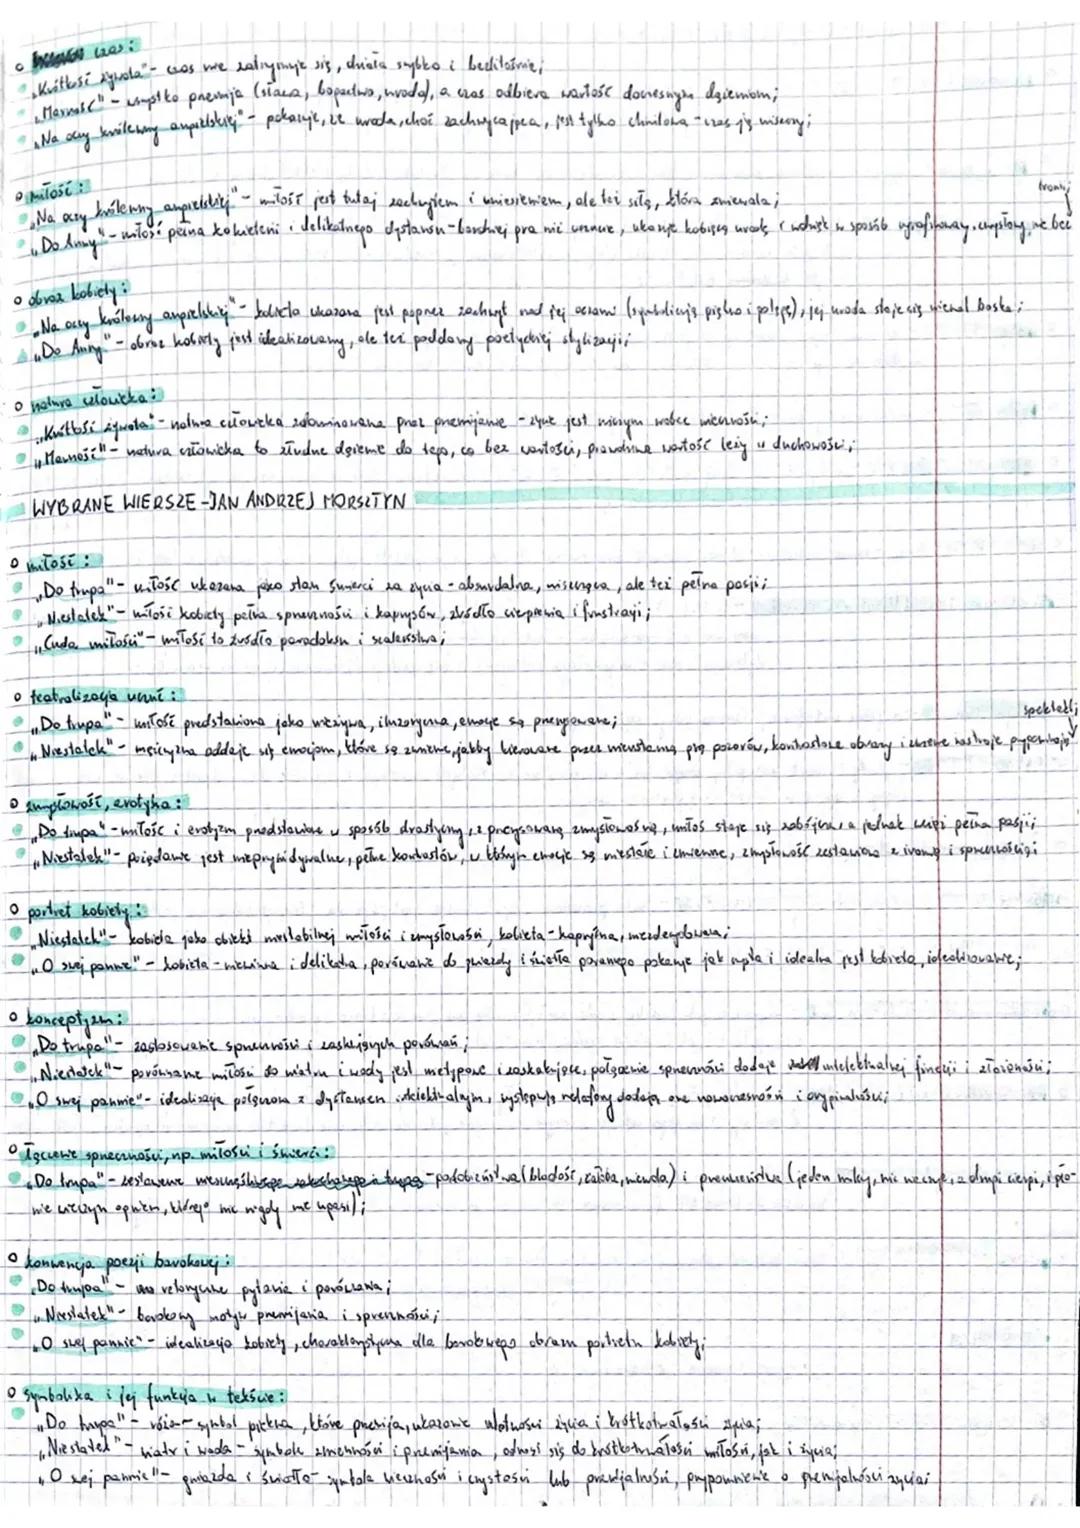 czas:
"Krótkość żywota" - czas nie zatrzymuje się, działa szybko i bezlitośnie;
"Marność" - wszystko przemija (sława, bogactwo, uroda), a czas odbiera wartość doczesnym dążeniom;
"Na oczy królewny angielskiej" - pokazuje, że uroda, choć zachwycająca, jest tylko chwilowa - czas ją niszczy;
miłość:
"Na oczy królewny angielskiej" - miłość jest tutaj zachwytem i uniesieniem, ale też siłą, która zniewala;
"Do Anny" - miłość pełna kokieterii i delikatnego dystansu - bardziej gra niż uczucie, ukazuje kobiecą urodę i wdzięk w sposób wyrafinowany, zmysłowy, nie bez ironii;
obraz kobiety:
"Na oczy królewny angielskiej" - kobieta ukazana jest poprzez zachwyt nad jej oczami (symbolizują piękno i potęgę), jej uroda staje się niemal boska;
"Do Anny" - obraz kobiety jest idealizowany, ale też poddany poetyckiej stylizacji;
natura człowieka:
"Krótkość żywota" - natura człowieka zdominowana przez przemijanie - życie jest niczym wobec wieczności;
"Marność" - natura człowieka to złudne dążenie do tego, co bez wartości, prawdziwa wartość leży w duchowości;
WYBRANE WIERSZE - JAN ANDRZEJ MORSZTYN
miłość:
"Do trupa" - miłość ukazana jako stan śmierci za życia - absurdalna, niszcząca, ale też pełna pasji;
"Niestatek" - miłość kobiety pełna sprzeczności i kaprysów, źródło cierpienia i frustracji;
"Cuda miłości" - miłość to źródło paradoksu i szaleństwa;
teatralizacja uczuć:
"Do trupa" - miłość przedstawiona jako nieżywa, iluzoryczna, emocje są przerysowane;
"Niestatek" - mężczyzna oddaje się emocjom, które są zmienne, jakby kierowane przez nieustanną grę pozorów, kontrastowe obrazy i zmienne nastroje przypominają spektakl;
zmysłowość, erotyka:
"Do trupa" - miłość i erotyzm przedstawione w sposób drastyczny, z przerysowaną zmysłowością, miłość staje się zabójcza, a jednak wciąż pełna pasji;
"Niestatek" - pożądanie jest nieprzewidywalne, pełne kontrastów, w którym emocje są niestałe i zmienne, zmysłowość zestawiona z ironią i sprzecznością;
portret kobiety:
"Niestatek" - kobieta jako obiekt niestabilnej miłości i zmysłowości, kobieta - kapryśna, niezdecydowana;
"O swej pannie" - kobieta - niewinna i delikatna, porównanie do gwiazdy i światła porannego pokazuje jak czysta i idealna jest kobieta, idealizowanie;
konceptyzm:
"Do trupa" - zastosowanie sprzeczności i zaskakujących porównań;
"Niestatek" - porównanie miłości do wiatru i wody jest nietypowe i zaskakujące, połączenie sprzeczności dodaje intelektualnej finezji i złożoności;
"O swej pannie" - idealizacja połączona z dystansem intelektualnym, występują metafory dodają one nowoczesności i oryginalności;
łączenie sprzeczności, np. miłości i śmierci:
"Do trupa" - zestawienie - podobieństwa (bladość, żałoba, niewola) i przeciwieństwa (jeden milczy, nic nie czuje, a drugi cierpi, i pło-
nie wiecznym ogniem, którego nic nigdy nie ugasi);
konwencja poezji barokowej:
"Do trupa" - retoryczne pytania i porównania;
"Niestatek" - barokowy motyw przemijania i sprzeczności;
"O swej pannie" - idealizacja kobiety, charakterystyczna dla barokowego obrazu portretu kobiety;
symbolika i jej funkcja w tekście:
"Do trupa" - róża - symbol piękna, które przemija, ukazanie ulotności życia i krótkotrwałości życia;
"Niestatek" - wiatr i woda - symbole zmienności i przemijania, odnosi się do krótkotrwałości miłości, jak i życia;
"O swej pannie" - gwiazda i światło - symbole wieczności i czystości lub przemijalności, przypomnienie o przemijalności życia;